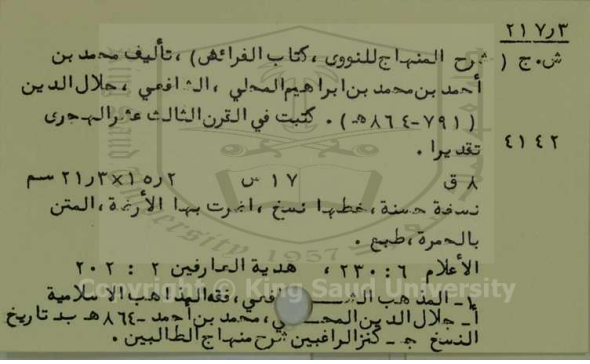 ٢١٧٫٣
ش٠ج ( شرح المنهاج للنووى ، كتاب الفرائض) ، تأليف محمد بن
أحمد بن محمد بن ابراهيم المحلي ، الشافعي ، جلال الدين
(٧٩١-٨٦٤هـ) . كتبت في القرن الثالث عشر الهجرى
٤١٤٢ تقديرا .
٨ ق ١٧ س ٢١٫٣×١٥٫٢ سم
نسخة حسنة ، خطها نسخ ، اضرت بها الأرضة ، المتن
بالحمرة ، طبع .
الأعلام ٦ : ٢٣٠ ، هدية العارفين ٢ : ٢٠٢
١- المذهب الشـ فعي ، فقه المذاهب الاسلامية
أ- جلال الدين المحـ ي ، محمد بن أحمد -٨٦٤هـ ب- تاريخ
النسخ ج- كنز الراغبين شرح منهاج الطالبين .
Copyright © King Saud University
1957